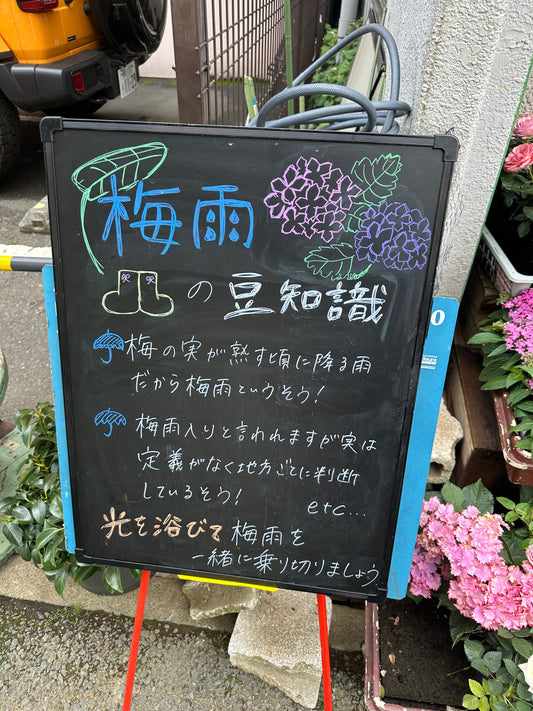 梅雨
の豆知識
梅の実が熟す頃に降る雨
だから梅雨というそう!
梅雨入りと言われますが実は
定義がなく地方ごとに判断
しているそう!
etc...
光を浴びて梅雨を
一緒に乗り切りましょう